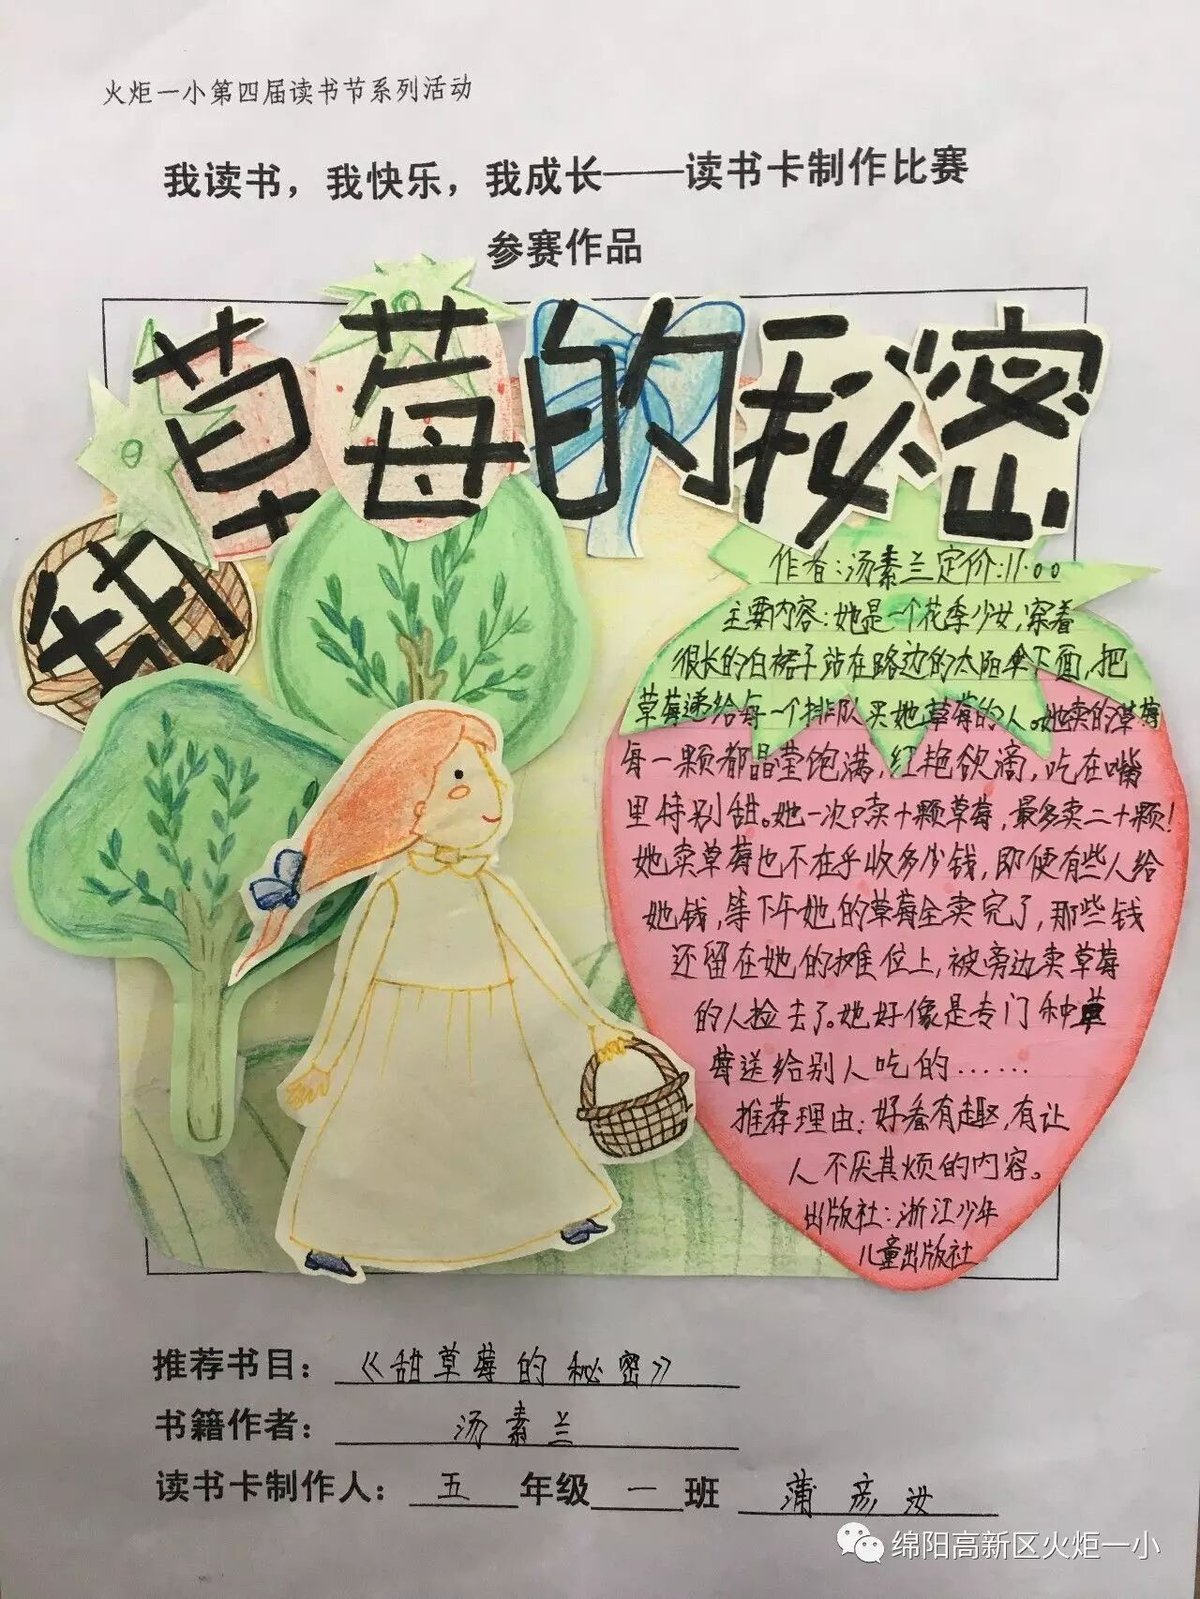 火炬一小第四届读书节系列活动
我读书，我快乐，我成长——读书卡制作比赛
参赛作品
甜草莓的秘密
作者:汤素兰定价:11.00
主要内容:她是一个花季少女,穿着
很长的白裙子站在路边的太阳伞下面,把
草莓递给每一个排队买她草莓的人。她卖的草莓
每一颗都晶莹饱满,红艳欲滴,吃在嘴
里特别甜。她一次只卖十颗草莓,最多卖二十颗!
她卖草莓也不在乎收多少钱,即便有些人给
她钱,等下午她的草莓全卖完了,那些钱
还留在她的摊位上,被旁边卖草莓
的人捡去了。她好像是专门种草
莓送给别人吃的……
推荐理由:好看有趣,有让
人不厌其烦的内容。
出版社:浙江少年
儿童出版社
推荐书目：《甜草莓的秘密》
书籍作者：汤素兰
读书卡制作人：五年级一班 蒲彦汝
绵阳高新区火炬一小